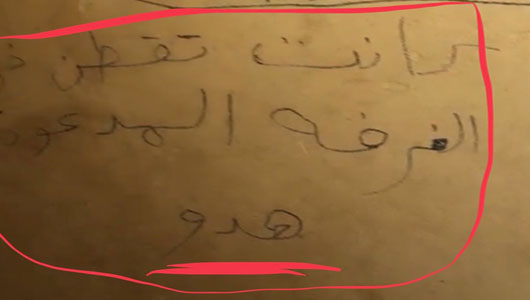 كانت تقطن
الغرفه المدعوة
هدو